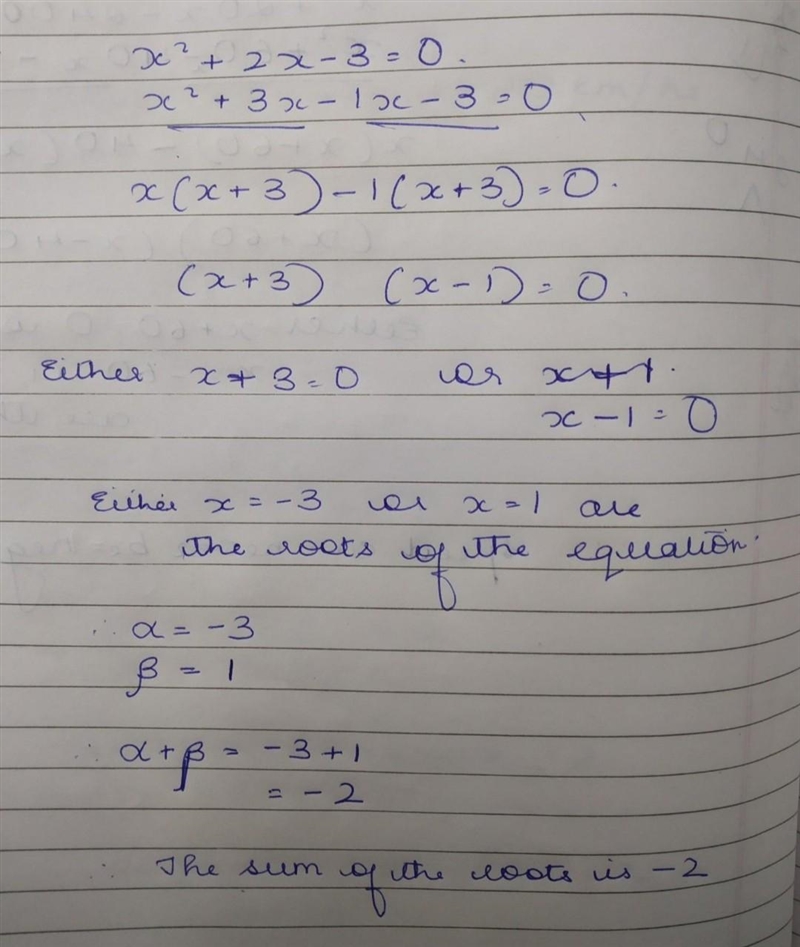 x² + 2x - 3 = 0.
x² + 3x - 1x - 3 = 0
x(x + 3) - 1(x + 3) = 0.
(x + 3) (x - 1) = 0.
Either x + 3 = 0 or x + 1.
x - 1 = 0
Either x = -3 or x = 1 are
the roots of the equation.
∴ α = -3
β = 1
∴ α + β = -3 + 1
= -2
∴ The sum of the roots is -2